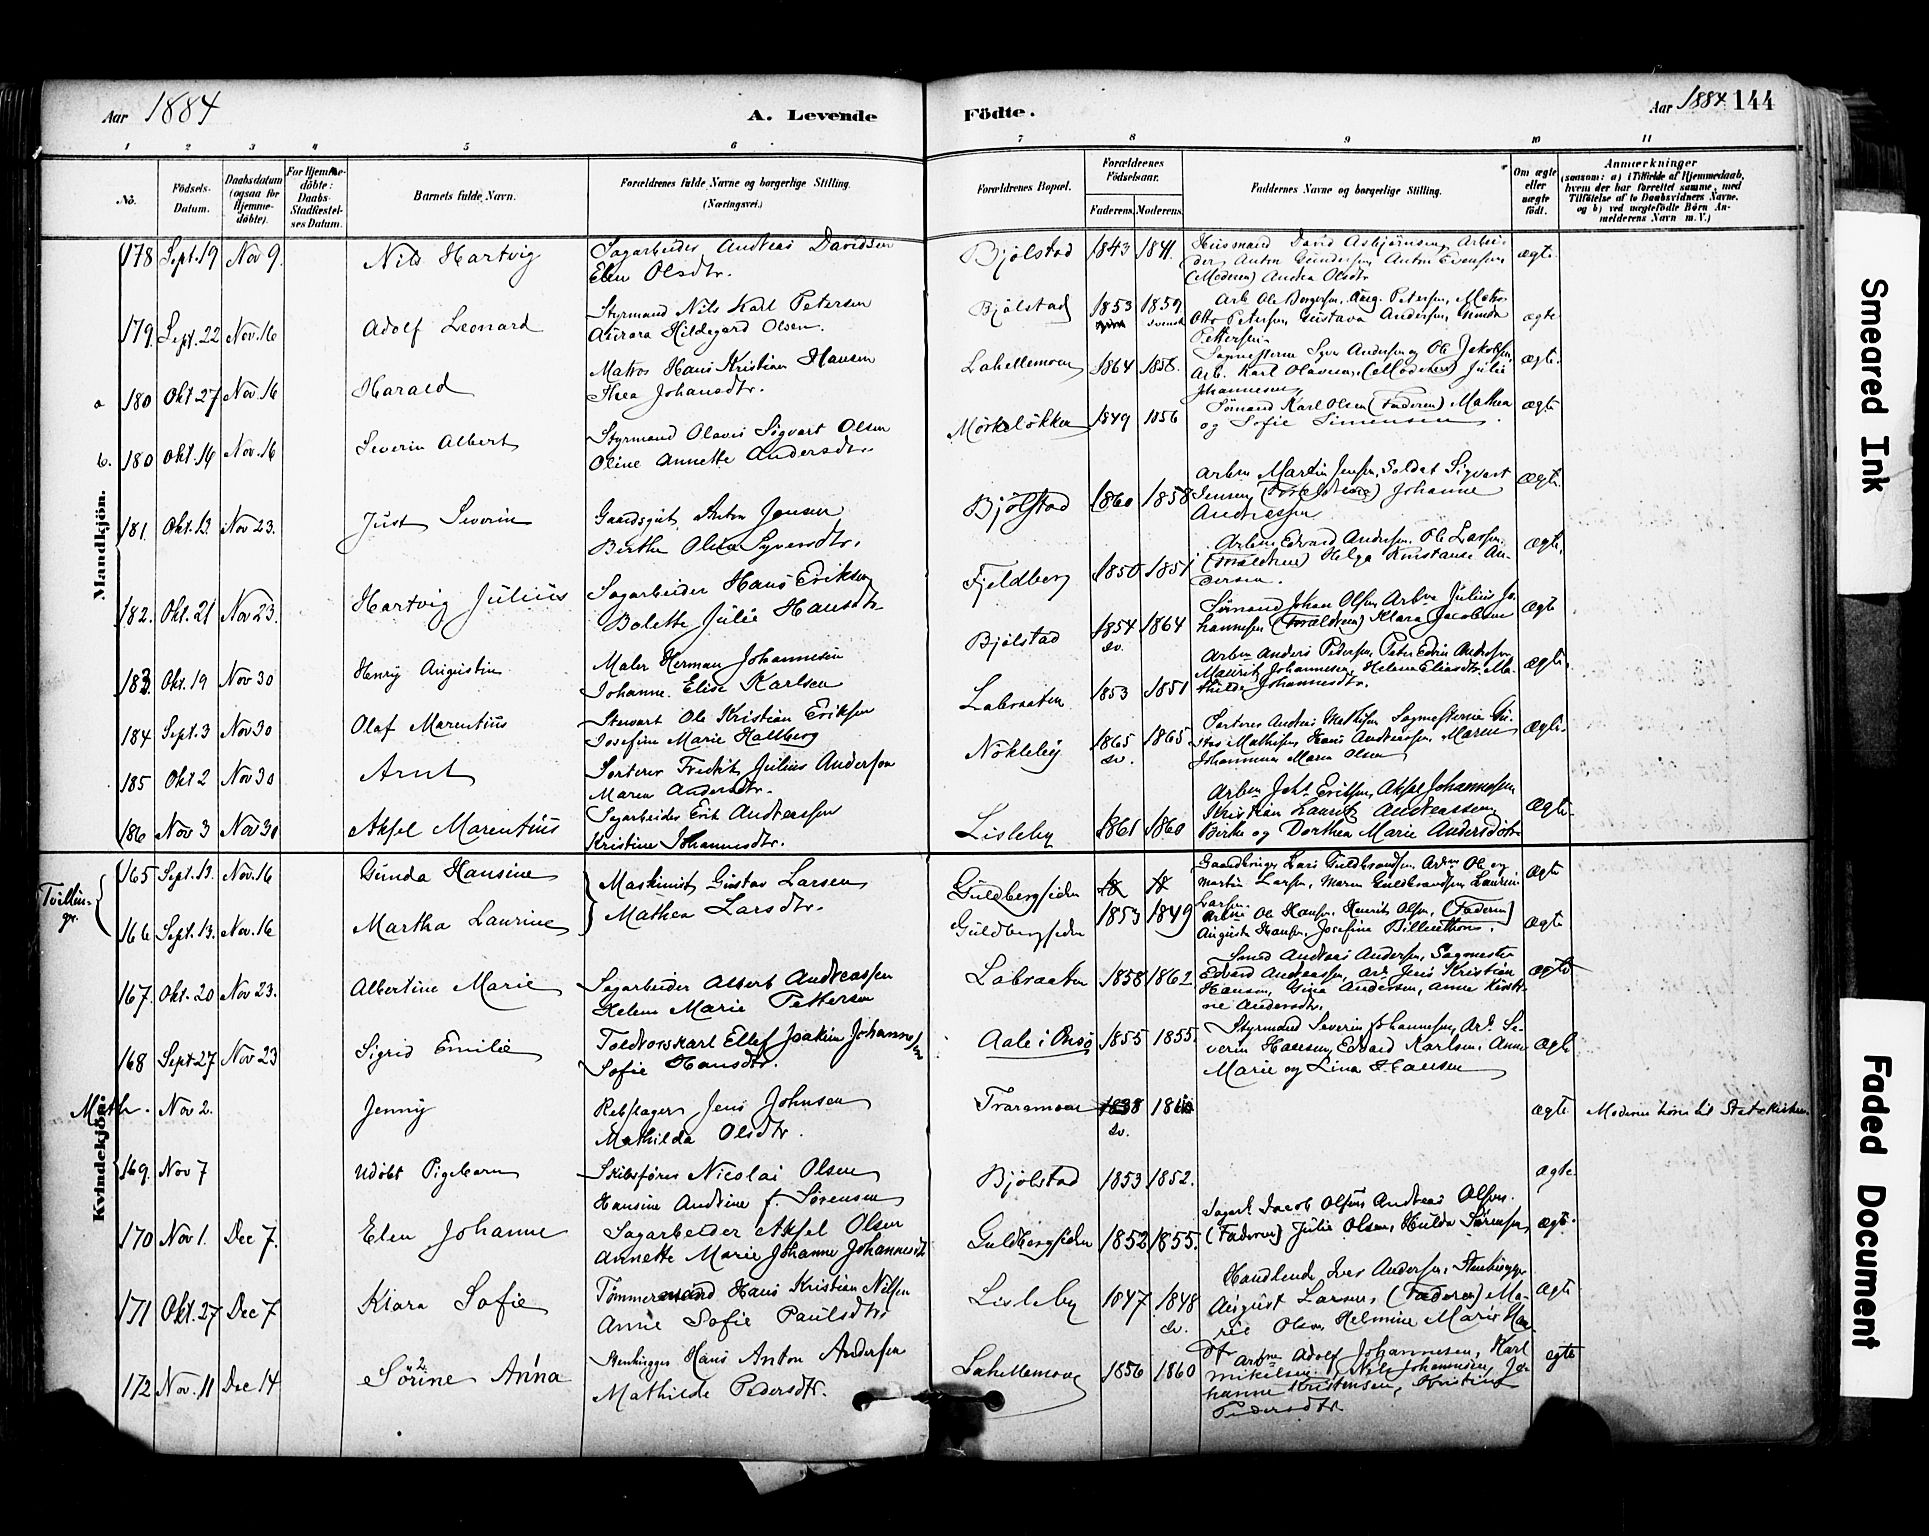 Aar 1884
A. Levende
Födte.
Aar 1884 144
1 2 3 4 5 6 7 8 9 10 11
No.
Födsels-
Datum.
Daabsdatum
(ogsaa for
Hjemme-
döbte).
For Hjemme-
döbte:
Daabs-
Stadfæstel-
ses Datum.
Barnets fulde Navn.
Forældrenes fulde Navne og borgerlige Stilling.
(Næringsvei.)
Forældrenes Bopæl.
Forældrenes
Födselsaar.
Faderens. Moderens.
Faddernes Navne og borgerlige Stilling.
Om ægte
eller
uægte
födt.
Anmærkninger
(saasom: a) i Tilfælde af Hjemmedaab,
hvem der har forrettet samme, med
Tilföielse af to Daabsvidners Navne.
og b) ved uægtefödte Börn An-
melderens Navn m. V.)
Mandkjön.
178 Sept. 19 Nov 9. Nils Hartvig
Sagarbeider Andreas Davidsen
Elen Olsdtr.
Bjölstad 1843 1841.
Husmand David Asbjörnsen, Arbei-
der Anton Gundersen, Anton Evensen
(Moderen) Andrea Olsdtr
ægte.
179. Sept. 22 Nov. 16 Adolf Leonard
Styrmand Nils Karl Petersen
Aurora Hildegard Olsen.
Bjölstad 1853 1859 svensk
Arb. Ole Borgersen, Aug. Petersen, Matros
Otto Petersen, Gustava Andersen, Gunda
Pettersen.
ægte
a 180 Okt 27 Nov. 16 Harald
Matros Hans Kristian Hansen
Thea Johansdtr.
Lahellemoen 1864 1858.
Sagmesterne Syver Andersen og Ole Jakobsen,
Arb. Karl Olavesen, (Moderen) Julie
Johannesen
ægte.
b. 180 Okt. 14 Nov. 16 Severin Albert
Styrmand Olavis Sigvart Olsen
Oline Annette Andersdtr.
Mörkelökken 1849 1856
Sömand Karl Olsen (Faderen) Mathea
og Sofie Simensen.
ægte
181. Okt. 13. Nov 23. Just Severin
Gaardsgut Anton Jensen
Berthe Olea Syversdtr.
Bjölstad 1860 1858
Arbm Martin Jensen, Soldat Sigvart
Jensen, (Forældrene) Johanne
Andreassen
ægte.
182. Okt. 21 Nov 23. Hartvig Julius
Sagarbeider Hans Eriksen
Bolette Julie Hansdtr
Fjeldberg 1850 1851
Arbm Edvard Andersen, Ole Larsen,
(Forældrene) Helga Konstanse An-
dersen.
ægte.
183. Okt. 19 Nov 30 Henry Augustin
Maler Herman Johannesen
Johanne Elise Karlsen
Bjölstad 1854 sv. 1864
Sömand Johan Olsen, Arbm Julius Jo-
hannesen (Forældrene) Klara Jacobsen
ægte
184 Sept. 3 Nov 30 Olaf Marentius
Stewart Ole Kristian Eriksen
Josefine Marie Hallberg
Labraaten 1853 1851
Arbm Anders Pedersen, Peter Edvin Andersen,
Maurits Johannesen, Helene Eliasdtr. Ma-
thilde Johannesdtr.
ægte.
185 Okt 2 Nov 30 Arnt
Sorterer Fredrik Julius Andersen
Maren Andersdtr.
Nökleby 1865 sv. 1865.
Sorterer Andreas Mathisen Sagmesterne Gu-
stav Mathisen, Hans Andreassen, Maren
Johannesen Maren Olsen
ægte.
186 Nov 3 Nov 30 Aksel Marentius
Sagarbeider Erik Andreassen
Kristine Johannesdtr.
Lisleby 1861 1860
Kristian Lauritz Andreassen
og Dorthea Marie Andersdotr
ægte.
Kvindekjön.
Tvillin-
gr.
165 Sept. 13. Nov. 16 Gunda Hansine
166 Sept. 13. Nov. 16 Martha Laurine
Maskinist Gustav Larsen
Mathea Larsdtr.
Guldbergsiden
Guldbergsiden 1853 1849
Gaardbruger Lars Guldbrandsen, Arbm Ole og
Martin Larsen, Maren Guldbrandsen, Laurine
Larsen.
ægte
Arbm Ole Hansen, Henrik Olsen, (Faderen)
Augusta Hansen, Josefine
ægte
167. Okt. 20 Nov 23. Albertine Marie
Sagarbeider Albert Andreassen
Helene Marie Pettersen
Labraaten 1858 1862
Smed Andreas Andersen, Sagmester
Edvard Andreassen, arb. Jens Kristian
Hansen, Gina Andersen, Anne Kirsti-
ne Andersdtr.
ægte
168 Sept 27 Nov 23 Sigrid Emilie
Toldvokskarl Ellef Joakim Johannesen
Sofie Hansdtr.
Aale i Onsö 1855 1855.
Styrmand Severin Johannesen, Arb. Se-
verin Hansen, Edvard Karlsen, Anne
Marie og Lina Hansen
ægte
Meth. Nov 2. Jenny
Rebslager Jens Johnsen
Mathilda Olsdtr.
Traramoen 1838 sv.
ægte Moderen hörer til Statskirken
169. Nov 7 Udöbt Pigebarn
Skibsförer Nicolai Olsen
Hansine Andrine f. Sörensen
Bjölstad 1853 1852.
ægte
170 Nov 1. Dec 7. Elen Johanne
Sagarbeider Aksel Olsen
Annette Marie Johanne Johannesdtr
Guldbergsiden 1852 1855.
Sagarb. Jacob Olsen, Andreas Olsen.
(Faderen) Julie Olsen, Hulda Sörensen,
ægte.
171 Okt. 27 Dec 7. Klara Sofie
Tömmermand Hans Kristian Nilsen
Anne Sofie Paulsdtr
Lisleby 1847 1848 sv.
Handlende Iver Andersen, Stenhugger
August Larsen, (Faderen) Ma-
rie Olsen, Helmine Marie Han-
ægte
172 Nov. 11 Dec 14 Sörine Anna
Stenhugger Hans Anton Andersen
Mathilde Pedersdtr.
Lahellemoen 1856 1860
Arbm Adolf Johannesen, Karl
Mikelsen, Nils Johannesen, Jo-
hanne Kristensen, Kristine
Pedersdtr.
ægte
Smeared Ink
Faded Document